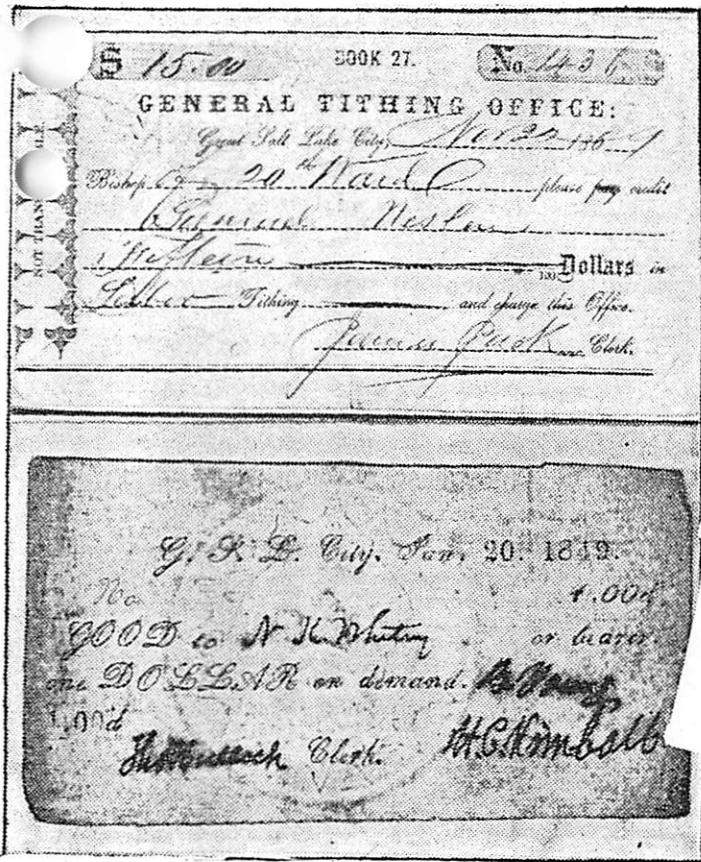 $ 15.00 BOOK 27. No. 1436
GENERAL TITHING OFFICE:
Great Salt Lake City, Nov 22 186
Bishop of 20th Ward please pay credit
Samuel
Fifteen Dollars in
Labor Tithing and charge this Office.
James Jack Clerk.
NOT TRAN LE.
G. S. L. City. Jan. 20. 1849.
No 1.00
GOOD to N K Whitney or bearer
one DOLLAR on demand. B Young
1,00d
Thos Bullock Clerk. H. C. Kimball